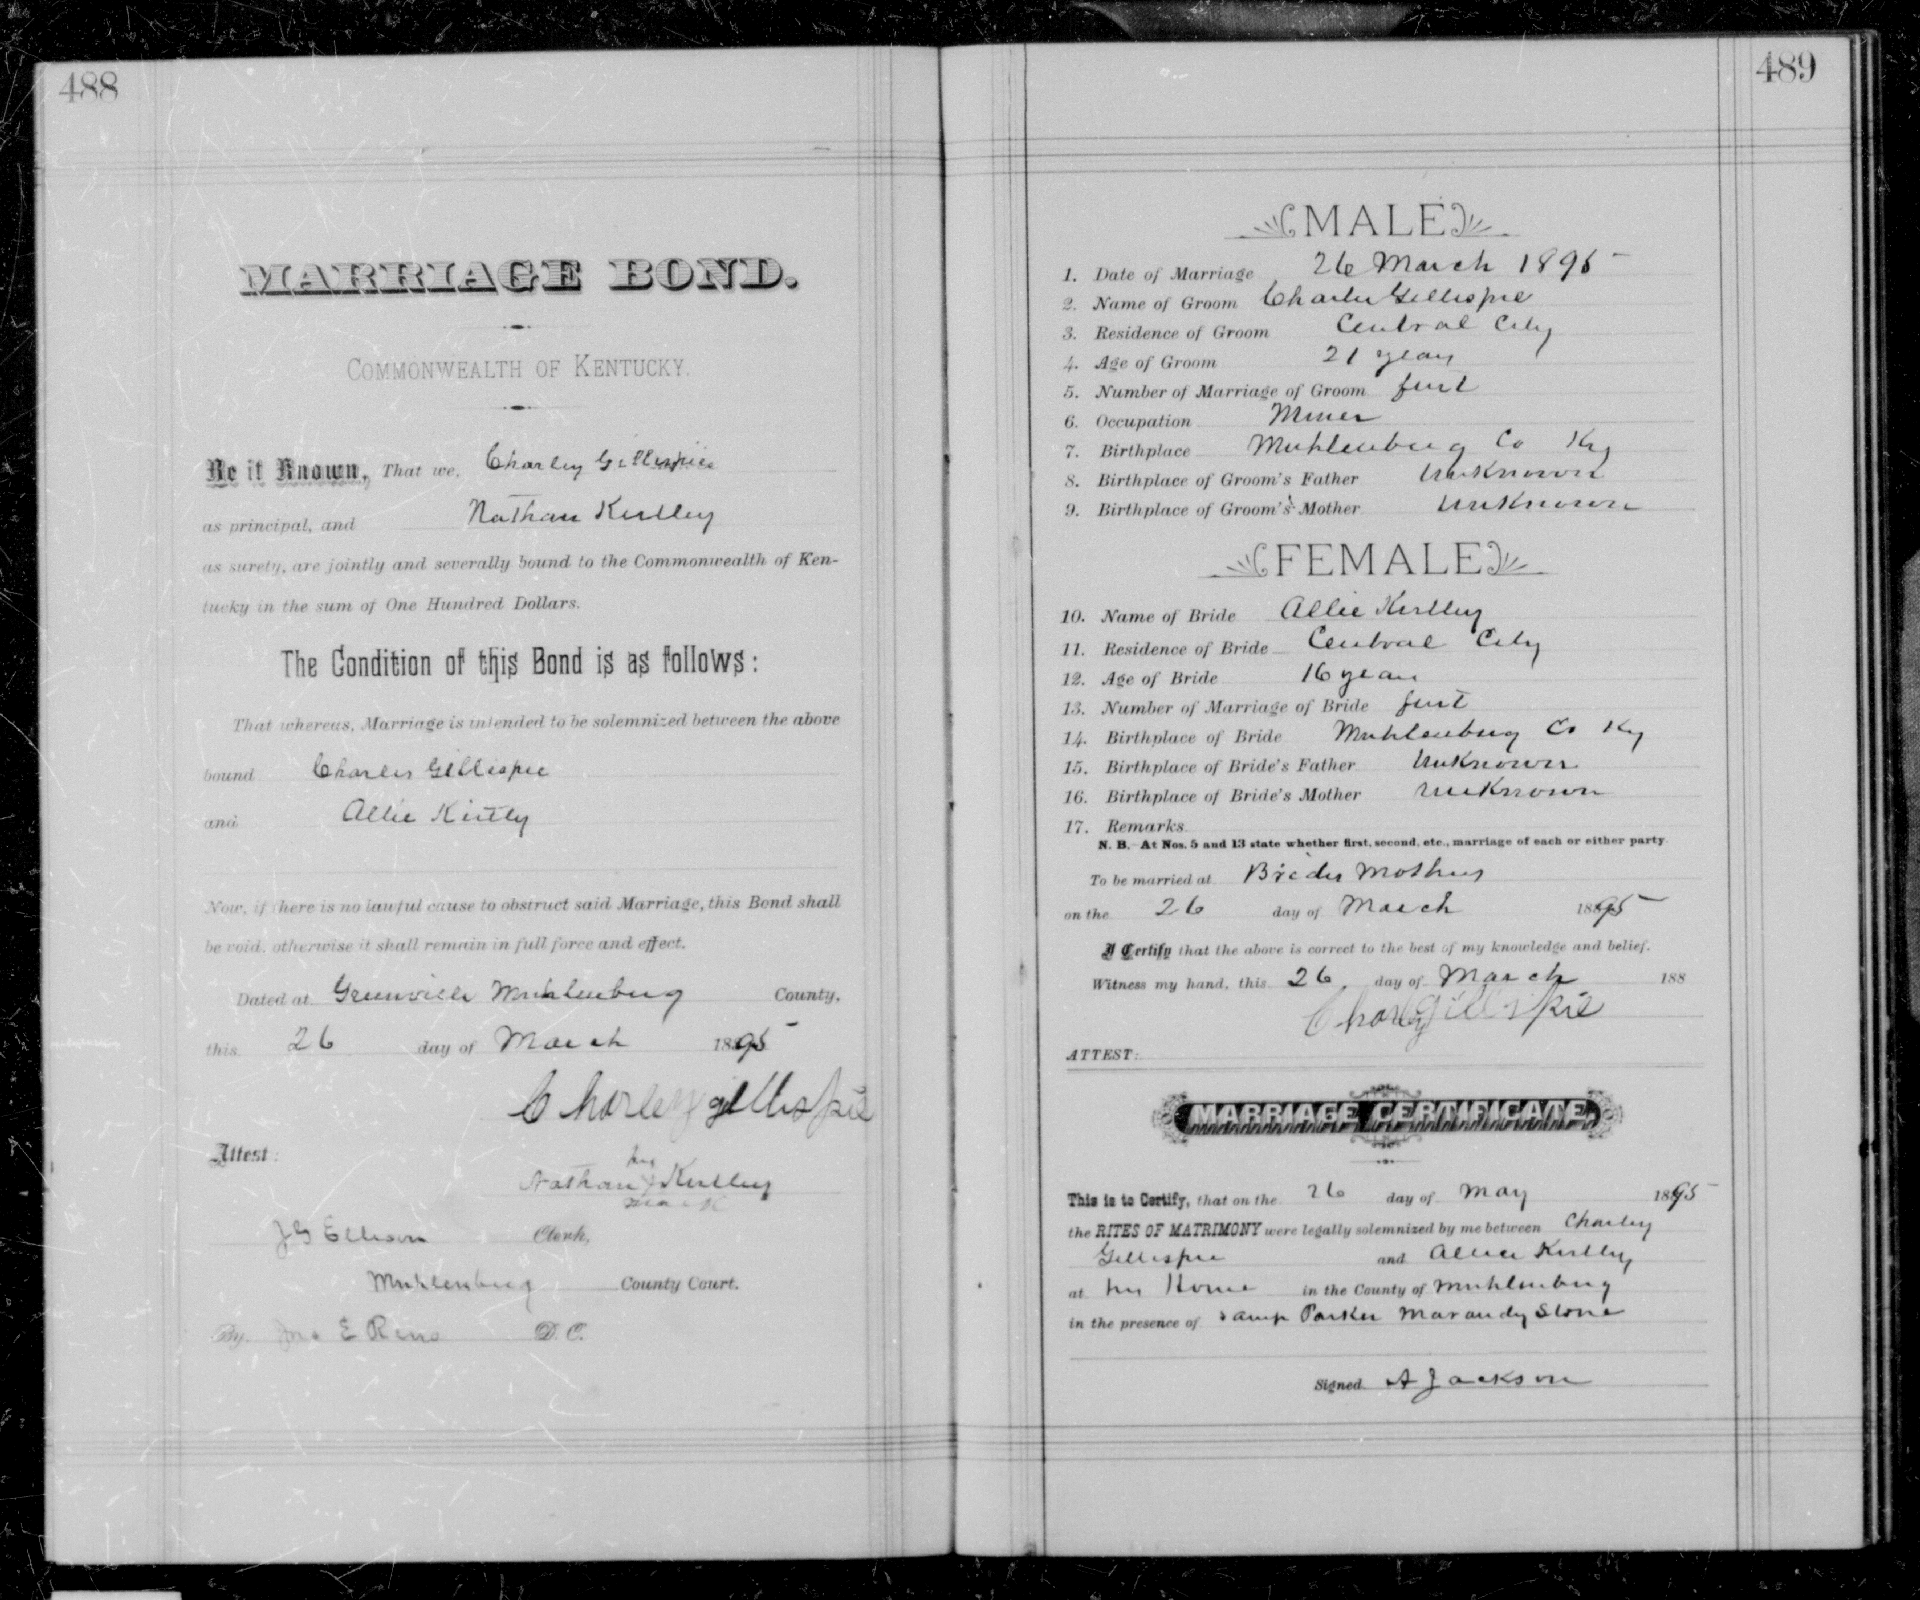 488
MARRIAGE BOND.
COMMONWEALTH OF KENTUCKY.
Be it Known, That we, Charley Gillispie
as principal, and Nathan Kirtley
as surety, are jointly and severally bound to the Commonwealth of Ken-
tucky in the sum of One Hundred Dollars.
The Condition of this Bond is as follows:
That whereas, Marriage is intended to be solemnized between the above
bound Charles Gillispie
and Allie Kirtly
Now, if there is no lawful cause to obstruct said Marriage, this Bond shall
be void, otherwise it shall remain in full force and effect.
Dated at Greenville Muhlenburg County,
this 26 day of March 1895
Charley gillispie
Attest:
his
Nathan X Kirtley
mark
J G Ellison Clerk,
Muhlenburg County Court.
By Jno E Reno D. C.
489
MALE
1. Date of Marriage 26 March 1895
2. Name of Groom Charles Gillispie
3. Residence of Groom Central City
4. Age of Groom 21 years
5. Number of Marriage of Groom first
6. Occupation Miner
7. Birthplace Muhlenburg Co Ky
8. Birthplace of Groom's Father Unknown
9. Birthplace of Groom's Mother Unknown
FEMALE
10. Name of Bride Allie Kirtley
11. Residence of Bride Central City
12. Age of Bride 16 years
13. Number of Marriage of Bride first
14. Birthplace of Bride Muhlenburg Co Ky
15. Birthplace of Bride's Father Unknown
16. Birthplace of Bride's Mother Unknown
17. Remarks
N. B.—At Nos. 5 and 13 state whether first, second, etc., marriage of each or either party.
To be married at Brides Mothers
on the 26 day of March 1895
I Certify that the above is correct to the best of my knowledge and belief.
Witness my hand, this 26 day of March 188
Charley gillispie
ATTEST:
MARRIAGE CERTIFICATE.
This is to Certify, that on the 26 day of May 1895
the RITES OF MATRIMONY were legally solemnized by me between Charley
Gillispie and Allice Kirtley
at his Home in the County of Muhlenburg
in the presence of Parker Marandy Stone
Signed A Jackson